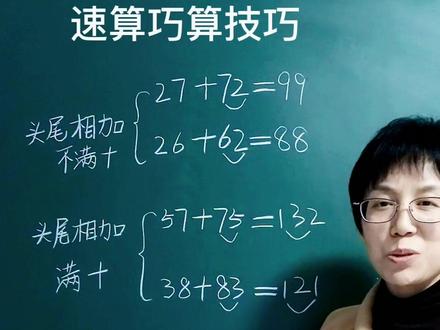 速算巧算技巧
头尾相加
不满十
27+72=99
26+62=88
头尾相加
满十
57+75=132
38+83=121